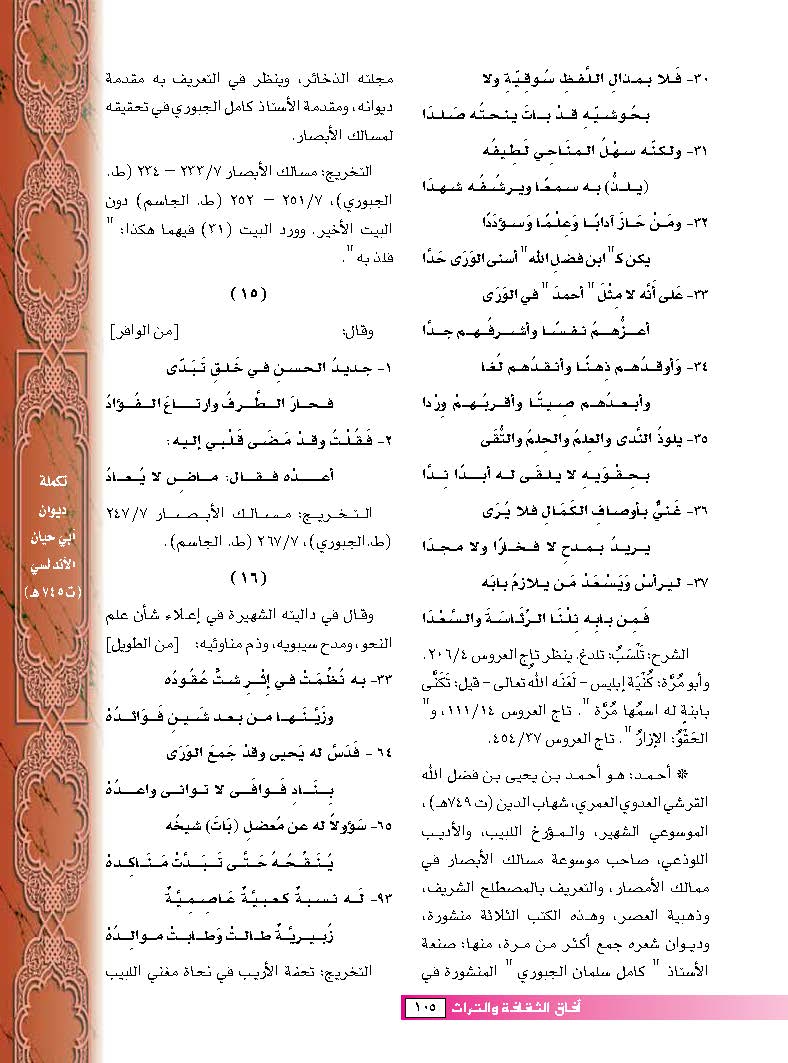 ٣٠- فَلا بمذالِ اللَّفظِ سُوقيّةٍ ولا
بحُوشيّهِ قدْ باتَ ينحتُه صَلدَا
٣١- ولكنّه سهْلُ المنَاحِي لَطِيفُه
(يلذُّ) به سمعًا ويرشُفُه شهدَا
٣٢- ومَنْ حَازَ آدابًا وَعِلْمًا وَسؤددًا
يكن كـ"ابن فضلِ الله" أسنى الوَرَى حَدَّا
٣٣- عَلى أنَّه لا مِثْلَ "أحمدَ" في الوَرَى
أعزُّهمُ نفسًا وأشرفُهم جدَّا
٣٤- وَأوقدُهم ذِهنًا وأنقدُهم لُغًا
وأبعدُهم صيتًا وأقربُهمْ وِرْدا
٣٥- يلوذُ النَّدى والعِلمُ والحِلمُ والتُّقَى
بحقْوَيهِ لا يلقَى له أبدًا نِدَّا
٣٦- غَنيٌّ بأوصافِ الكَمَالِ فلا يُرَى
يريدُ بمدحٍ لا فخارًا ولا مجدَا
٣٧- ليرأسْ وَيَسْعَدْ مَن يلازمُ بابَه
فَمِن بابِه نِلْنَا الرِّئَاسَةَ والسَّعْدَا
الشرح: تَلْسَبُ: تلدغ. ينظر تاج العروس ٢٠٦/٤.
وأبو مُرَّة: كُنْيَة إبليس – لَعَنَه اللهُ تعالى – قيل: تكَنَّى
بابنةٍ له اسمُها مُرَّة". تاج العروس ١١١/١٤، و"
الحَقْوُ: الإزارُ". تاج العروس ٤٥٤/٣٧.
* أحمد: هو أحمد بن يحيى بن فضل الله
القرشي العدوي العمري، شهاب الدين (ت٧٤٩هـ)،
الموسوعي الشهير، والمؤرخ اللبيب، والأديب
اللوذعي، صاحب موسوعة مسالك الأبصار في
ممالك الأمصار، والتعريف بالمصطلح الشريف،
وذهبية العصر، وهذه الكتب الثلاثة منشورة،
وديوان شعره جمع أكثر من مرة، منها: صنعة
الأستاذ "كامل سلمان الجبوري" المنشورة في
مجلته الذخائر، وينظر في التعريف به مقدمة
ديوانه، ومقدمة الأستاذ كامل الجبوري في تحقيقه
لمسالك الأبصار.
التخريج: مسالك الأبصار ٢٣٣/٧ – ٢٣٤ (ط.
الجبوري)، ٢٥١/٧ – ٢٥٢ (ط. الجاسم) دون
البيت الأخير. وورد البيت (٣١) فيهما هكذا: "
فلذ به".
(١٥)
وقال: [من الوافر]
١- جديدُ الحسنِ في خَلقٍ تَبَدَّى
فحارَ الطَّرفُ وارتاعَ الفُؤادُ
٢- فَقُلْتُ وقدْ مَضَى قَلْبي إليه:
أعدْه فقال: ماضٍ لا يُعادُ
التخريج: مسالك الأبصار ٢٤٧/٧
(ط.الجبوري)، ٢٦٧/٧ (ط. الجاسم).
(١٦)
وقال في داليته الشهيرة في إعلاء شأن علم
النحو، ومدح سيبويه، وذم مناوئيه: [من الطويل]
٣٣- به نُظِّمَتْ في إثْرِ شتٍّ عُقُودُه
وزَيَّنَها من بعد شَينٍ فَوَائدُهْ
٦٤- فَدَسَّ له يَحيى وقدْ جَمعَ الوَرَى
بِنَادٍ فَوافَى لا توانى واعدُهْ
٦٥- سَؤولاً له عن مُعضلٍ (بَاتَ) شيخُه
يُنَقِّحُهُ حَتَّى تَبَدَّتْ مَنَاكِدهْ
٩٣- لَه نسبةٌ كعبيَّةٌ عَاصِميَّةٌ
زُبيريَّةٌ طالتْ وَطابتْ موالدُهْ
التخريج: تحفة الأريب في نحاة مغني اللبيب
تكملة
ديوان
أبي حيان
الأندلسي
(ت٧٤٥هـ)
آفاق الثقافة والتراث ١٠٥